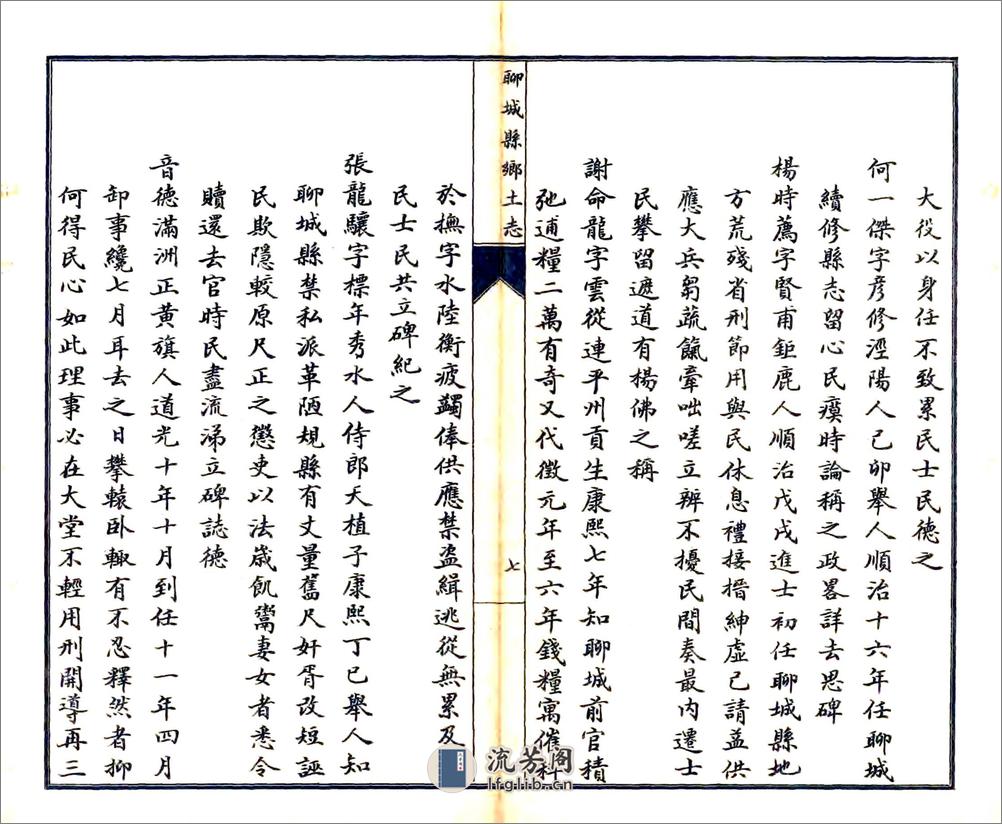 大役以身任不致累民士民德之
何一傑字彥修涇陽人己卯舉人順治十六年任聊城
續修縣志留心民瘼時論稱之政畧詳去思碑
楊時薦字賢甫鉅鹿人順治戊戌進士初任聊城縣地
方荒殘省刑節用與民休息禮接搢紳虛己請益供
應大兵芻蔬餼牽咄嗟立辨不擾民間奏最內遷士
民攀留遮道有楊佛之稱
謝命龍字雲從連平州貢生康熙七年知聊城前官積
弛逋糧二萬有奇又代徵元年至六年錢糧寓催科
聊城縣鄉土志
七
於撫字水陸衡疲蠲俸供應禁盜緝逃從無累及
民士民共立碑紀之
張龍驤字標年秀水人侍郎天植子康熙丁巳舉人知
聊城縣禁私派革陋規縣有丈量舊尺奸胥改短誣
民欺隱較原尺正之懲吏以法歲飢鬻妻女者悉令
贖還去官時民盡流涕立碑誌德
音德滿洲正黃旗人道光十年十月到任十一年四月
卸事纔七月耳去之日攀轅卧輙有不忍釋然者抑
何得民心如此理事必在大堂不輕用刑開導再三
流芳阁
lfglib.cn